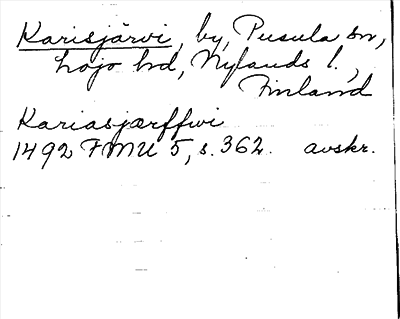 Karisjärvi, by, Pusula sn,
Lojo hd, Nylands l.,
Finland
Kariasjærffwi
1492 FMU 5, s. 362. avskr.